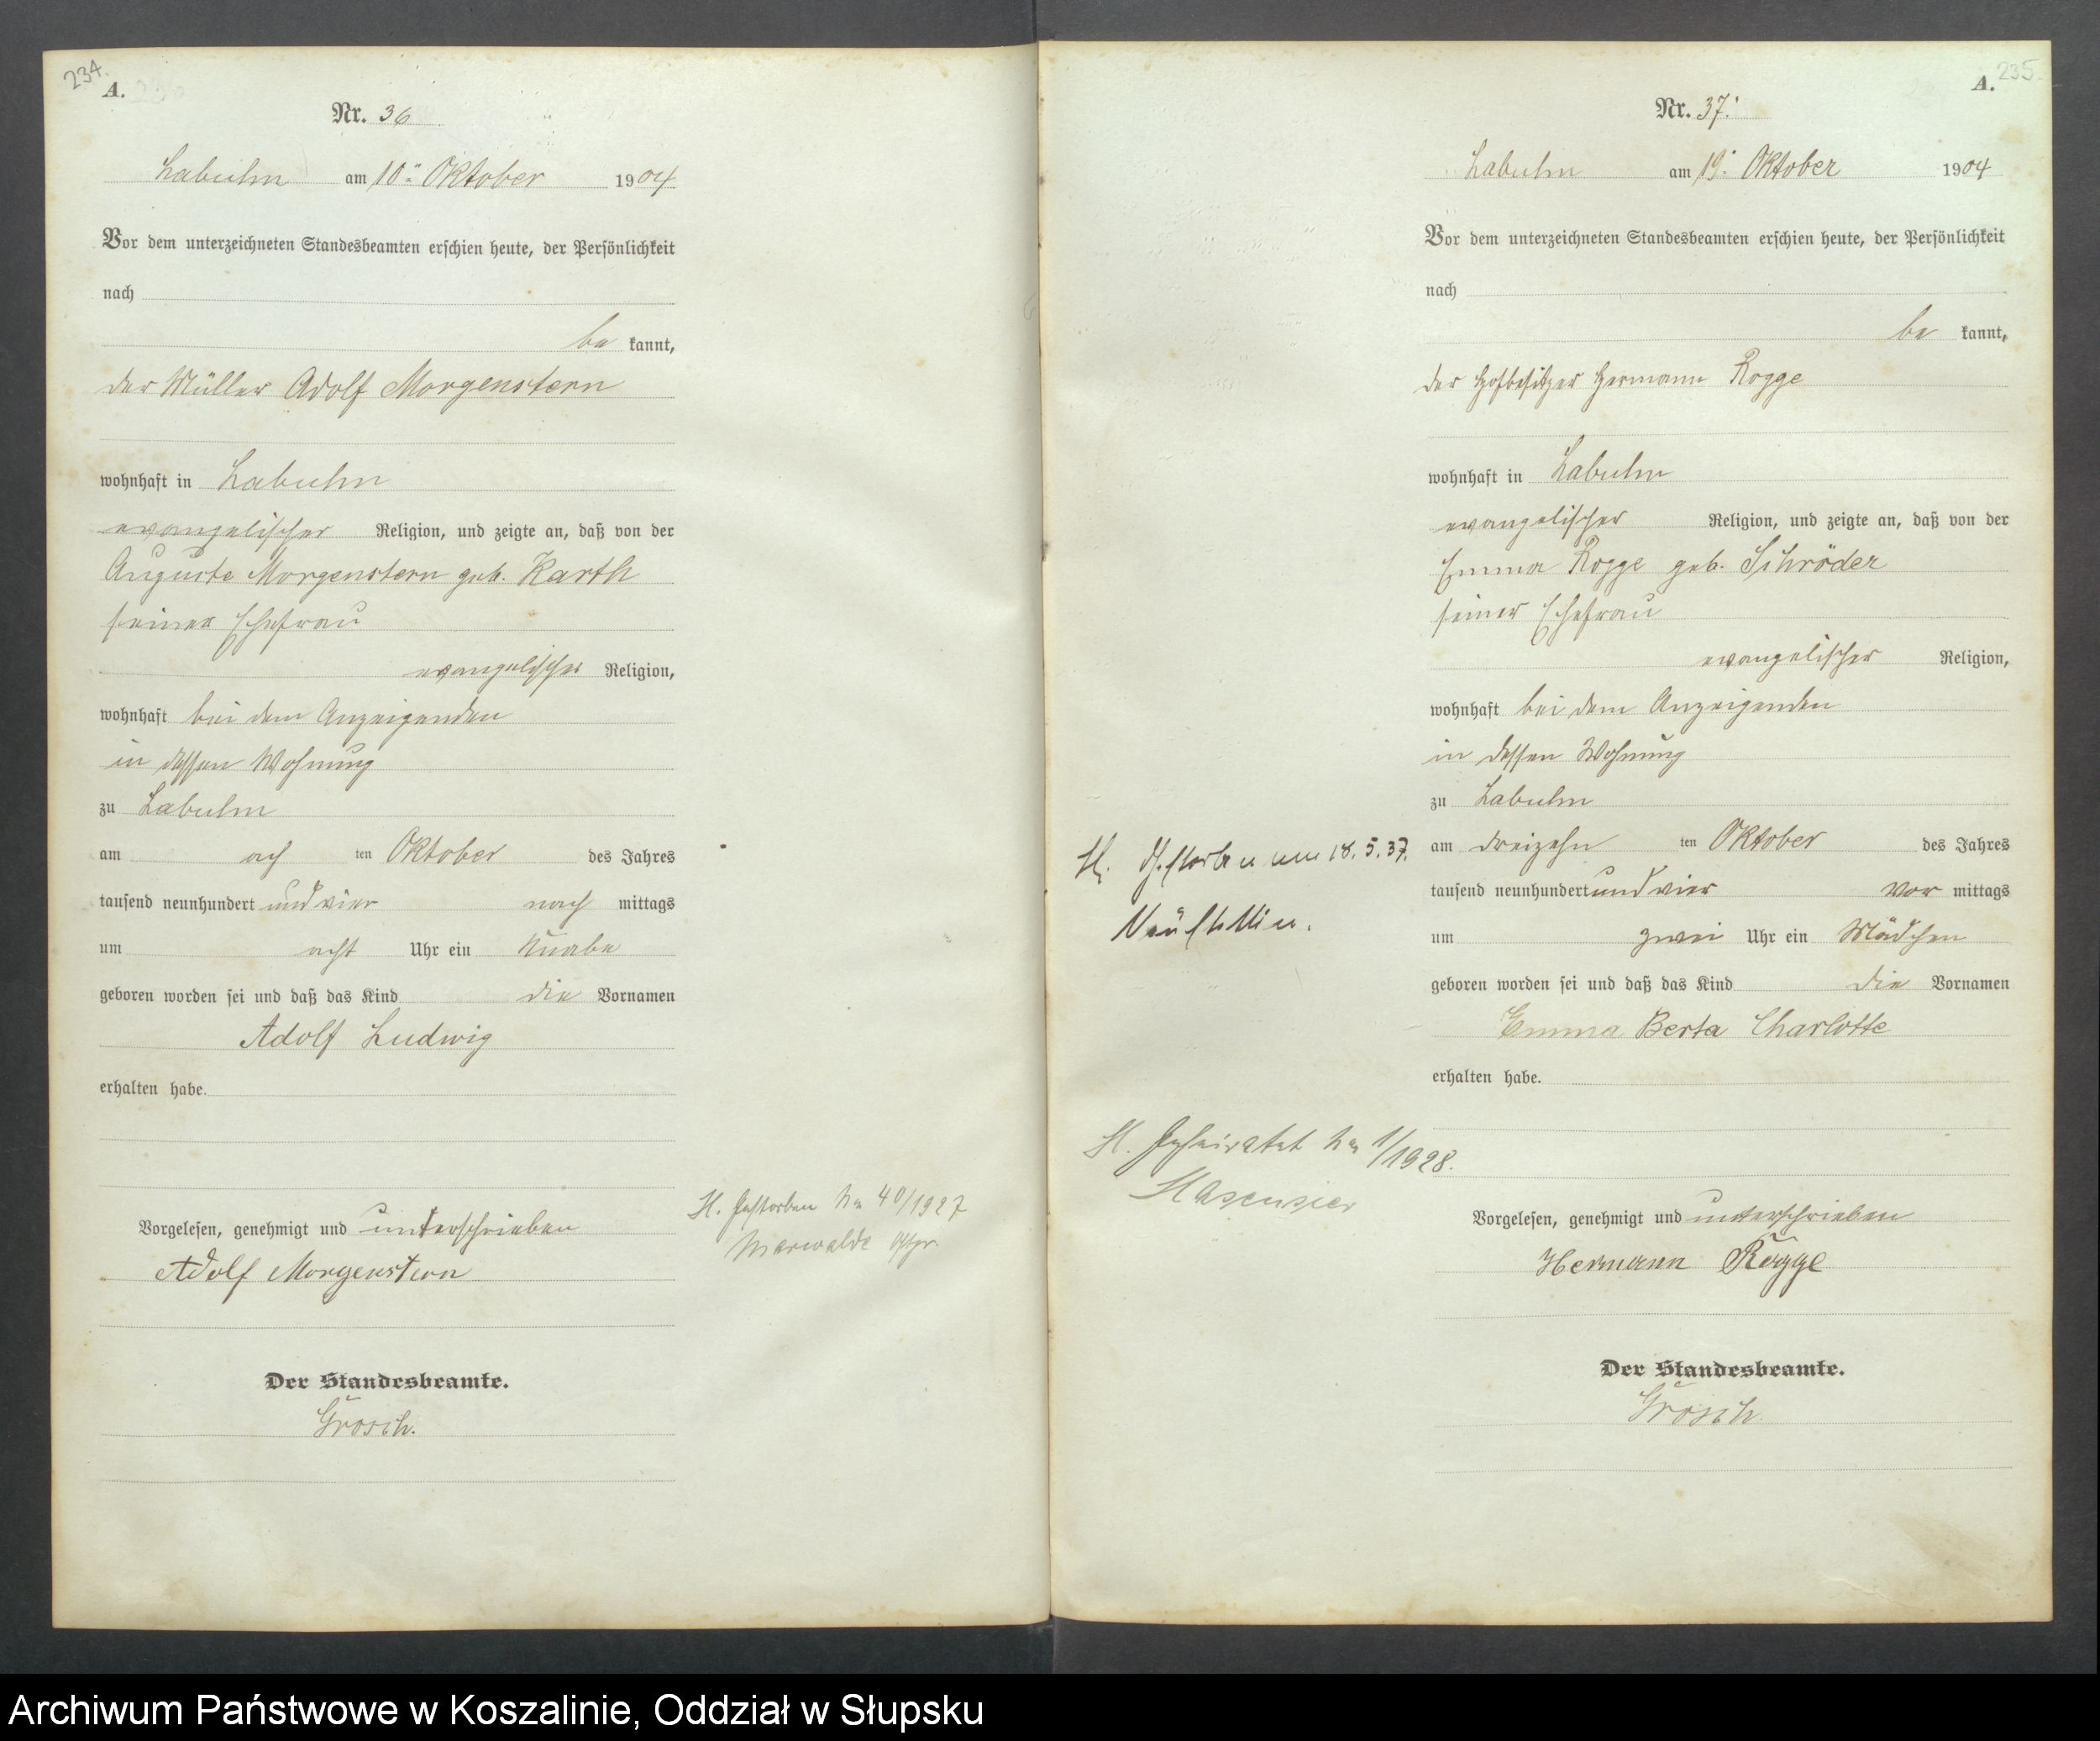 234.
A.
Nr. 36
Labuhn am 10. Oktober 1904
Vor dem unterzeichneten Standesbeamten erschien heute, der Persönlichkeit
nach
be kannt,
der Müller Adolf Morgenstern
wohnhaft in Labuhn
evangelischer Religion, und zeigte an, daß von der
Auguste Morgenstern geb. Karth
seiner Ehefrau
evangelischer Religion,
wohnhaft bei dem Anzeigenden
in dessen Wohnung
zu Labuhn
am ach ten Oktober des Jahres
tausend neunhundert und vier nach mittags
um acht Uhr ein Knabe
geboren worden sei und daß das Kind die Vornamen
Adolf Ludwig
erhalten habe.
Vorgelesen, genehmigt und unterschrieben
Adolf Morgenstern
Der Standesbeamte.
Grosch.
H. Gestorben No 40/1927
Marwalde Ostpr.
235
A.
Nr. 37.
Labuhn am 19. Oktober 1904
Vor dem unterzeichneten Standesbeamten erschien heute, der Persönlichkeit
nach
be kannt,
der Hofbesitzer Hermann Rogge
wohnhaft in Labuhn
evangelischer Religion, und zeigte an, daß von der
Emma Rogge geb. Schröder
seiner Ehefrau
evangelischer Religion,
wohnhaft bei dem Anzeigenden
in dessen Wohnung
zu Labuhn
am dreizehn ten Oktober des Jahres
tausend neunhundert und vier vor mittags
um zwei Uhr ein Mädchen
geboren worden sei und daß das Kind die Vornamen
Emma Berta Charlotte
erhalten habe.
Vorgelesen, genehmigt und unterschrieben
Hermann Rogge
Der Standesbeamte.
Grosch
H. Gestorben am 18.5.37.
Neustettin.
H. Geheiratet No 1/1928.
Hasensier
Archiwum Państwowe w Koszalinie, Oddział w Słupsku